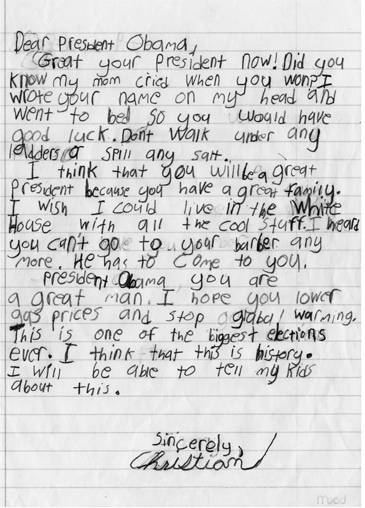 Dear President Obama,
Great your President now! Did you
know my mom cried when you won? I
wrote your name on my head and
went to bed so you would have
good luck. Dont walk under any
ladders or spill any salt.
I think that you will be a great
President because you have a great family.
I wish I could live in the White
House with all the cool stuff. I heard
you can't go to your barber any
more. He has to come to you.
President Obama, you are
a great man. I hope you lower
gas prices and stop global warming.
This is one of the biggest elections
ever. I think that this is history.
I will be able to tell my kids
about this.
Sincerely,
Christian